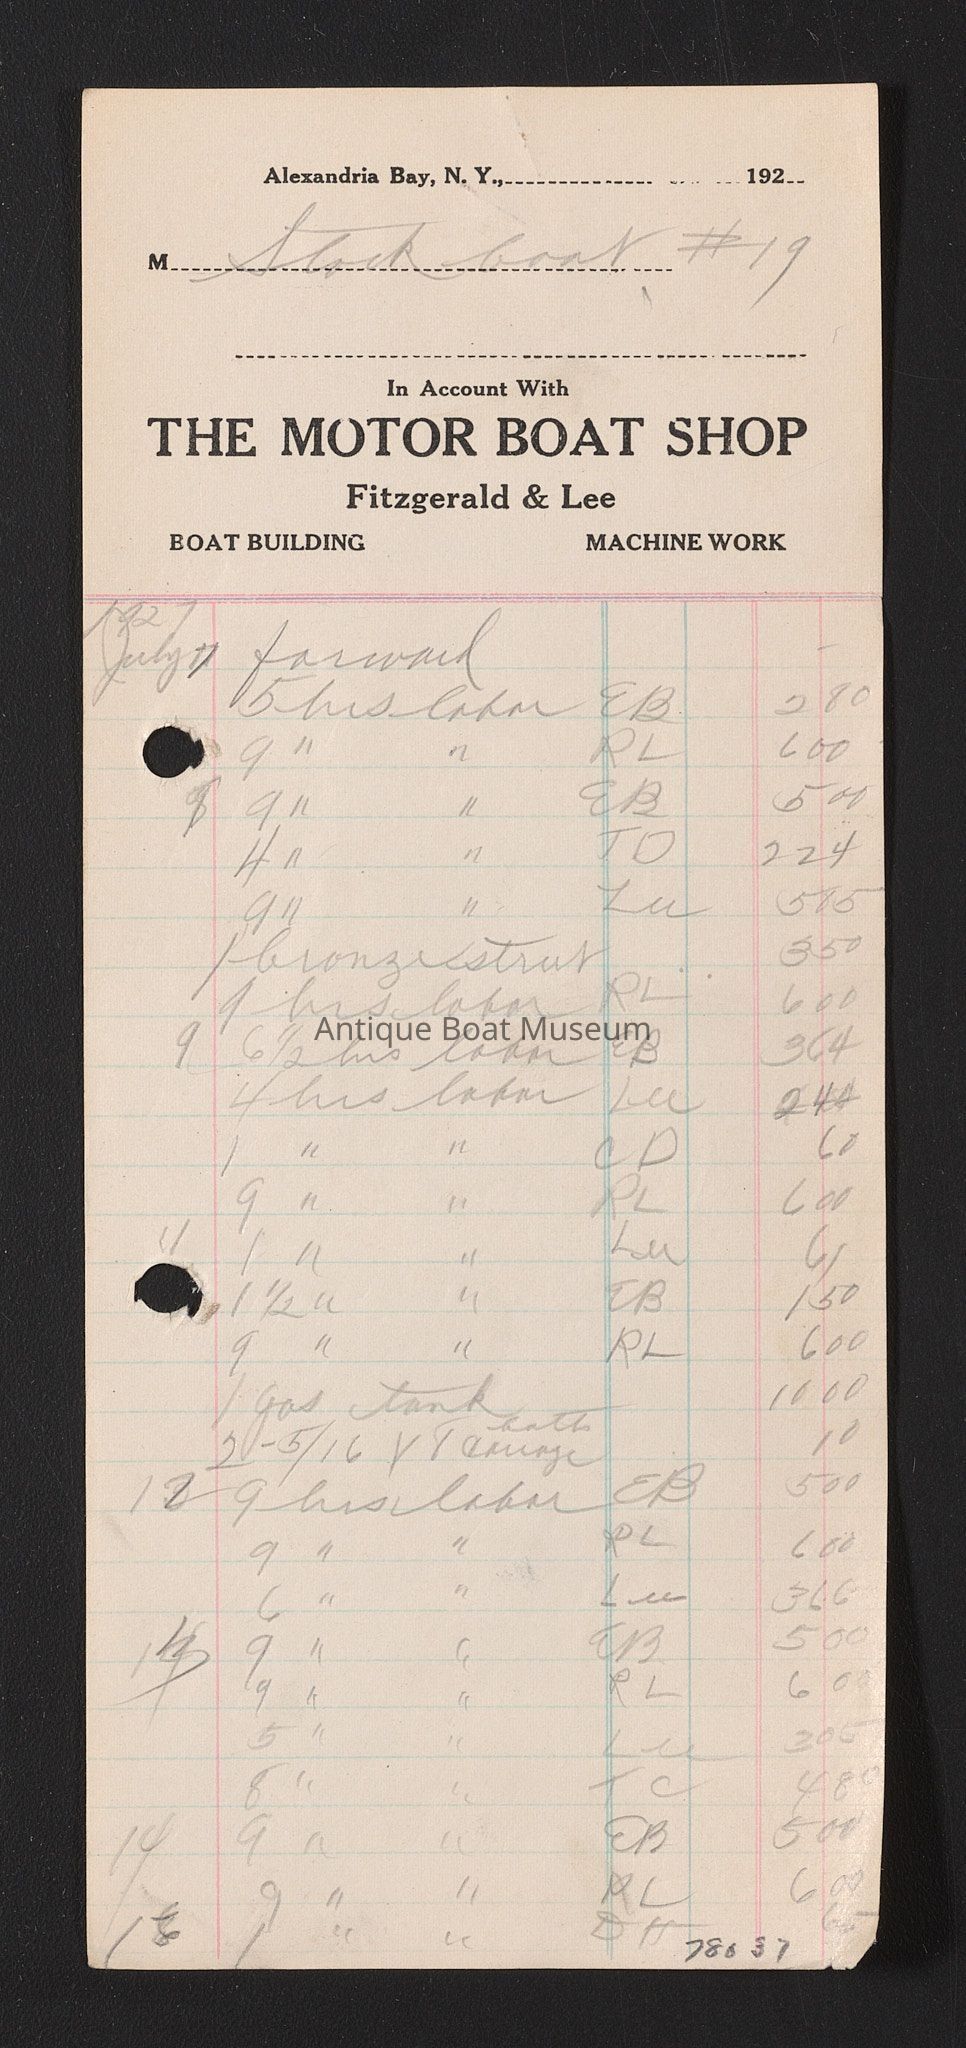 Alexandria Bay, N. Y., 192
M Stock boat #19
In Account With
THE MOTOR BOAT SHOP
Fitzgerald & Lee
BOAT BUILDING MACHINE WORK
1927
July 7 forward -
5 hrs labor EB 2 80
9 " " RL 6 00
8 9 " " EB 5 00
4 " " TD 2 24
9 " " Lee
1 bronze strut 3 50
9 hrs labor RL 6 00
Antique Boat Museum
9 6 1/2 hrs labor EB 3 64
4 hrs labor Lee 2 44
1 " " CD 60
9 " " RL 6 00
11 1 " " Lee 61
1 1/2 " " EB 1 50
9 " " RL 6 00
1 gas tank 10 00
2 - 5/16 X 1 carriage bolts 10
12 9 hrs labor EB 5 00
9 " " RL 6 00
6 " " Lee 3 66
9 " " EB 5 00
9 " " RL 6 00
5 " " Lee 3 05
8 " " TC 4 80
14 9 " " EB 5 00
9 " " RL 6 00
1 " " DH 65